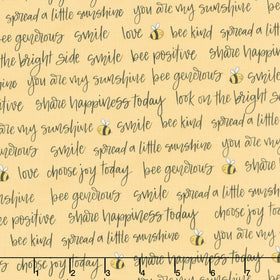 spread a little sunshine you are my sunshine
bee generous smile love bee kind spread a little
the bright side smile bee positive share happiness
shine you are my sunshine bee generous smile
share happiness today look on the bright si
are my sunshine smile bee kind spread a little
generous smile spread a little sunshine you are my
love choose joy today bee generous love
nshine bee generous smile spread a little sunshine
bee positive share happiness today choose joy
bee kind spread a little sunshine you are my
choose joy today share happiness today
1 2 3 4 5 6 7